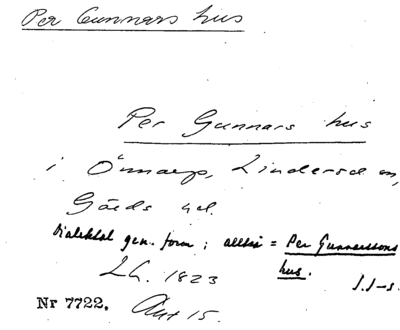 Per Gunnars hus
Per Gunnars hus
i Önnarp, Linderöds sn,
Gärds hd.
Dialektal gen. form; alltså = Per Gunnarssons
hus.
LG. 1823
J.J-s.
Nr 7722. Akt 15.